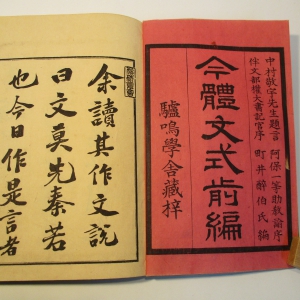 中村敬宇先生題言 阿保一等助教諭序
伴文部權大書記官序 町井醉伯氏編
今體文式前編
驢鳴學舍藏梓
余讀其作文説
曰文莫先秦若
也今日作是言者